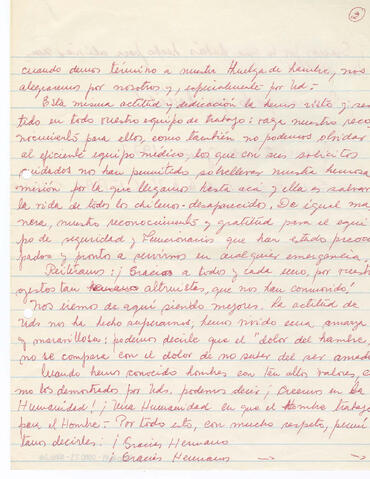 2)
cuando demos término a nuestra Huelga de hambre, nos
alegramos por nosotros y, especialmente por Uds.-
Esta misma actitud y dedicación la hemos visto y sen-
tido en todo nuestro equipo de trabajo: vaya nuestro reco-
nocimiento para ellos, como también no podemos olvidar
al eficiente equipo médico, los que con sus solícitos
cuidados nos han permitido sobrellevar nuestra hermosa
misión por la que llegamos hasta acá y ella es salvar
la vida de todos los chilenos-desaparecidos. De igual ma
nera, nuestro reconocimiento y gratitud para el equi
po de seguridad y Funcionarios que han estado preocu
pados y pronto a servirnos en cualquier emergencia.
Reiteramos: ¡Gracias a todos y cada uno, por vuestros
gestos tan humanos altruistas, que nos han conmovido!
Nos iremos de aquí siendo mejores. La actitud de
Uds nos ha hecho superarnos, hemos vivido una amarga
y maravillosa: podemos decirle que el "dolor del hambre,
no se compara con el dolor de no saber del ser amado
Cuando hemos conocido hombres con tan altos valores, co
mo los demostrados por Uds. podemos decir ¡Creemos en la
Humanidad! ¡Una Humanidad en que el Hombre trabaja
para el Hombre.- Por todo esto, con mucho respeto, permí
tanos decirles: ¡Gracias Hermano
¡Gracias Hermanos